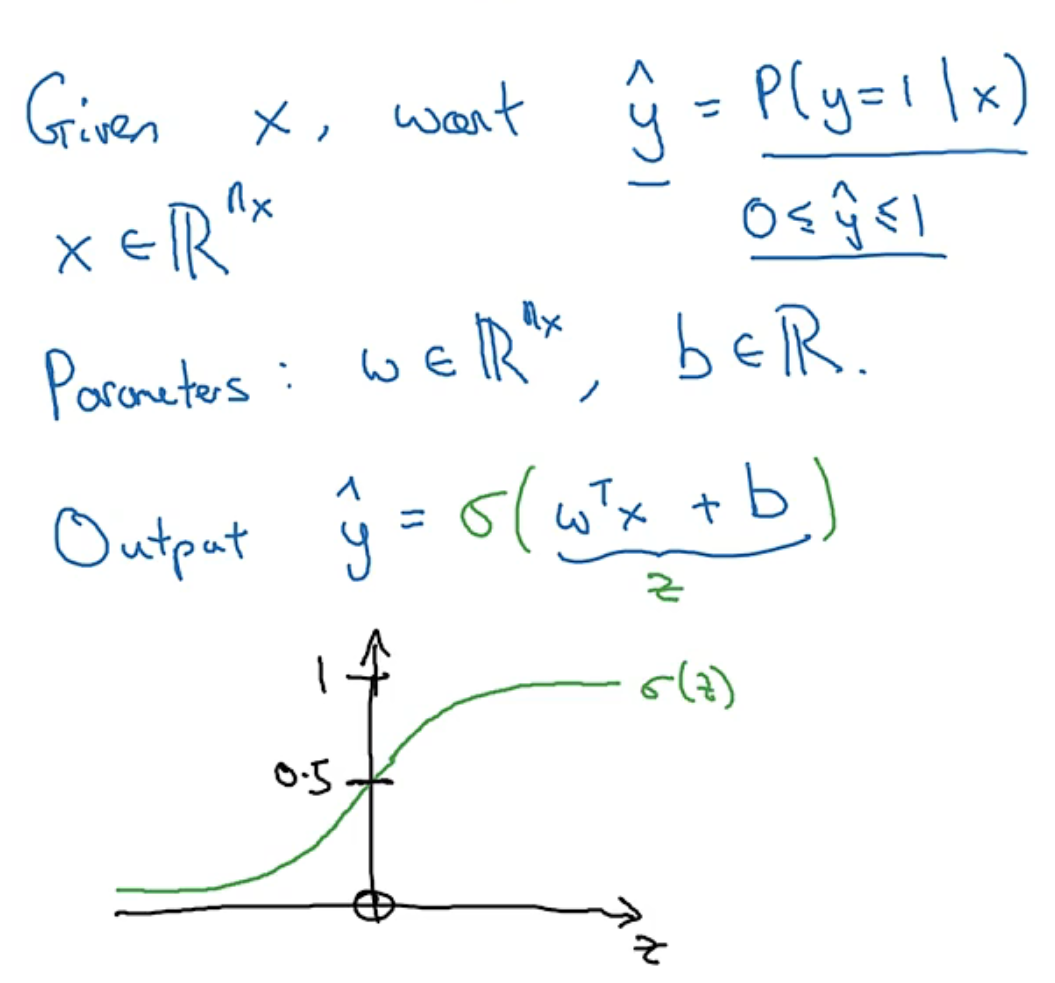 Given x, want ŷ = P(y=1 | x)
x ∈ ℝ^{n_x}
0 ≤ ŷ ≤ 1
Parameters: w ∈ ℝ^{n_x}, b ∈ ℝ.
Output ŷ = σ(w^T x + b)
z
1
σ(z)
0.5
z